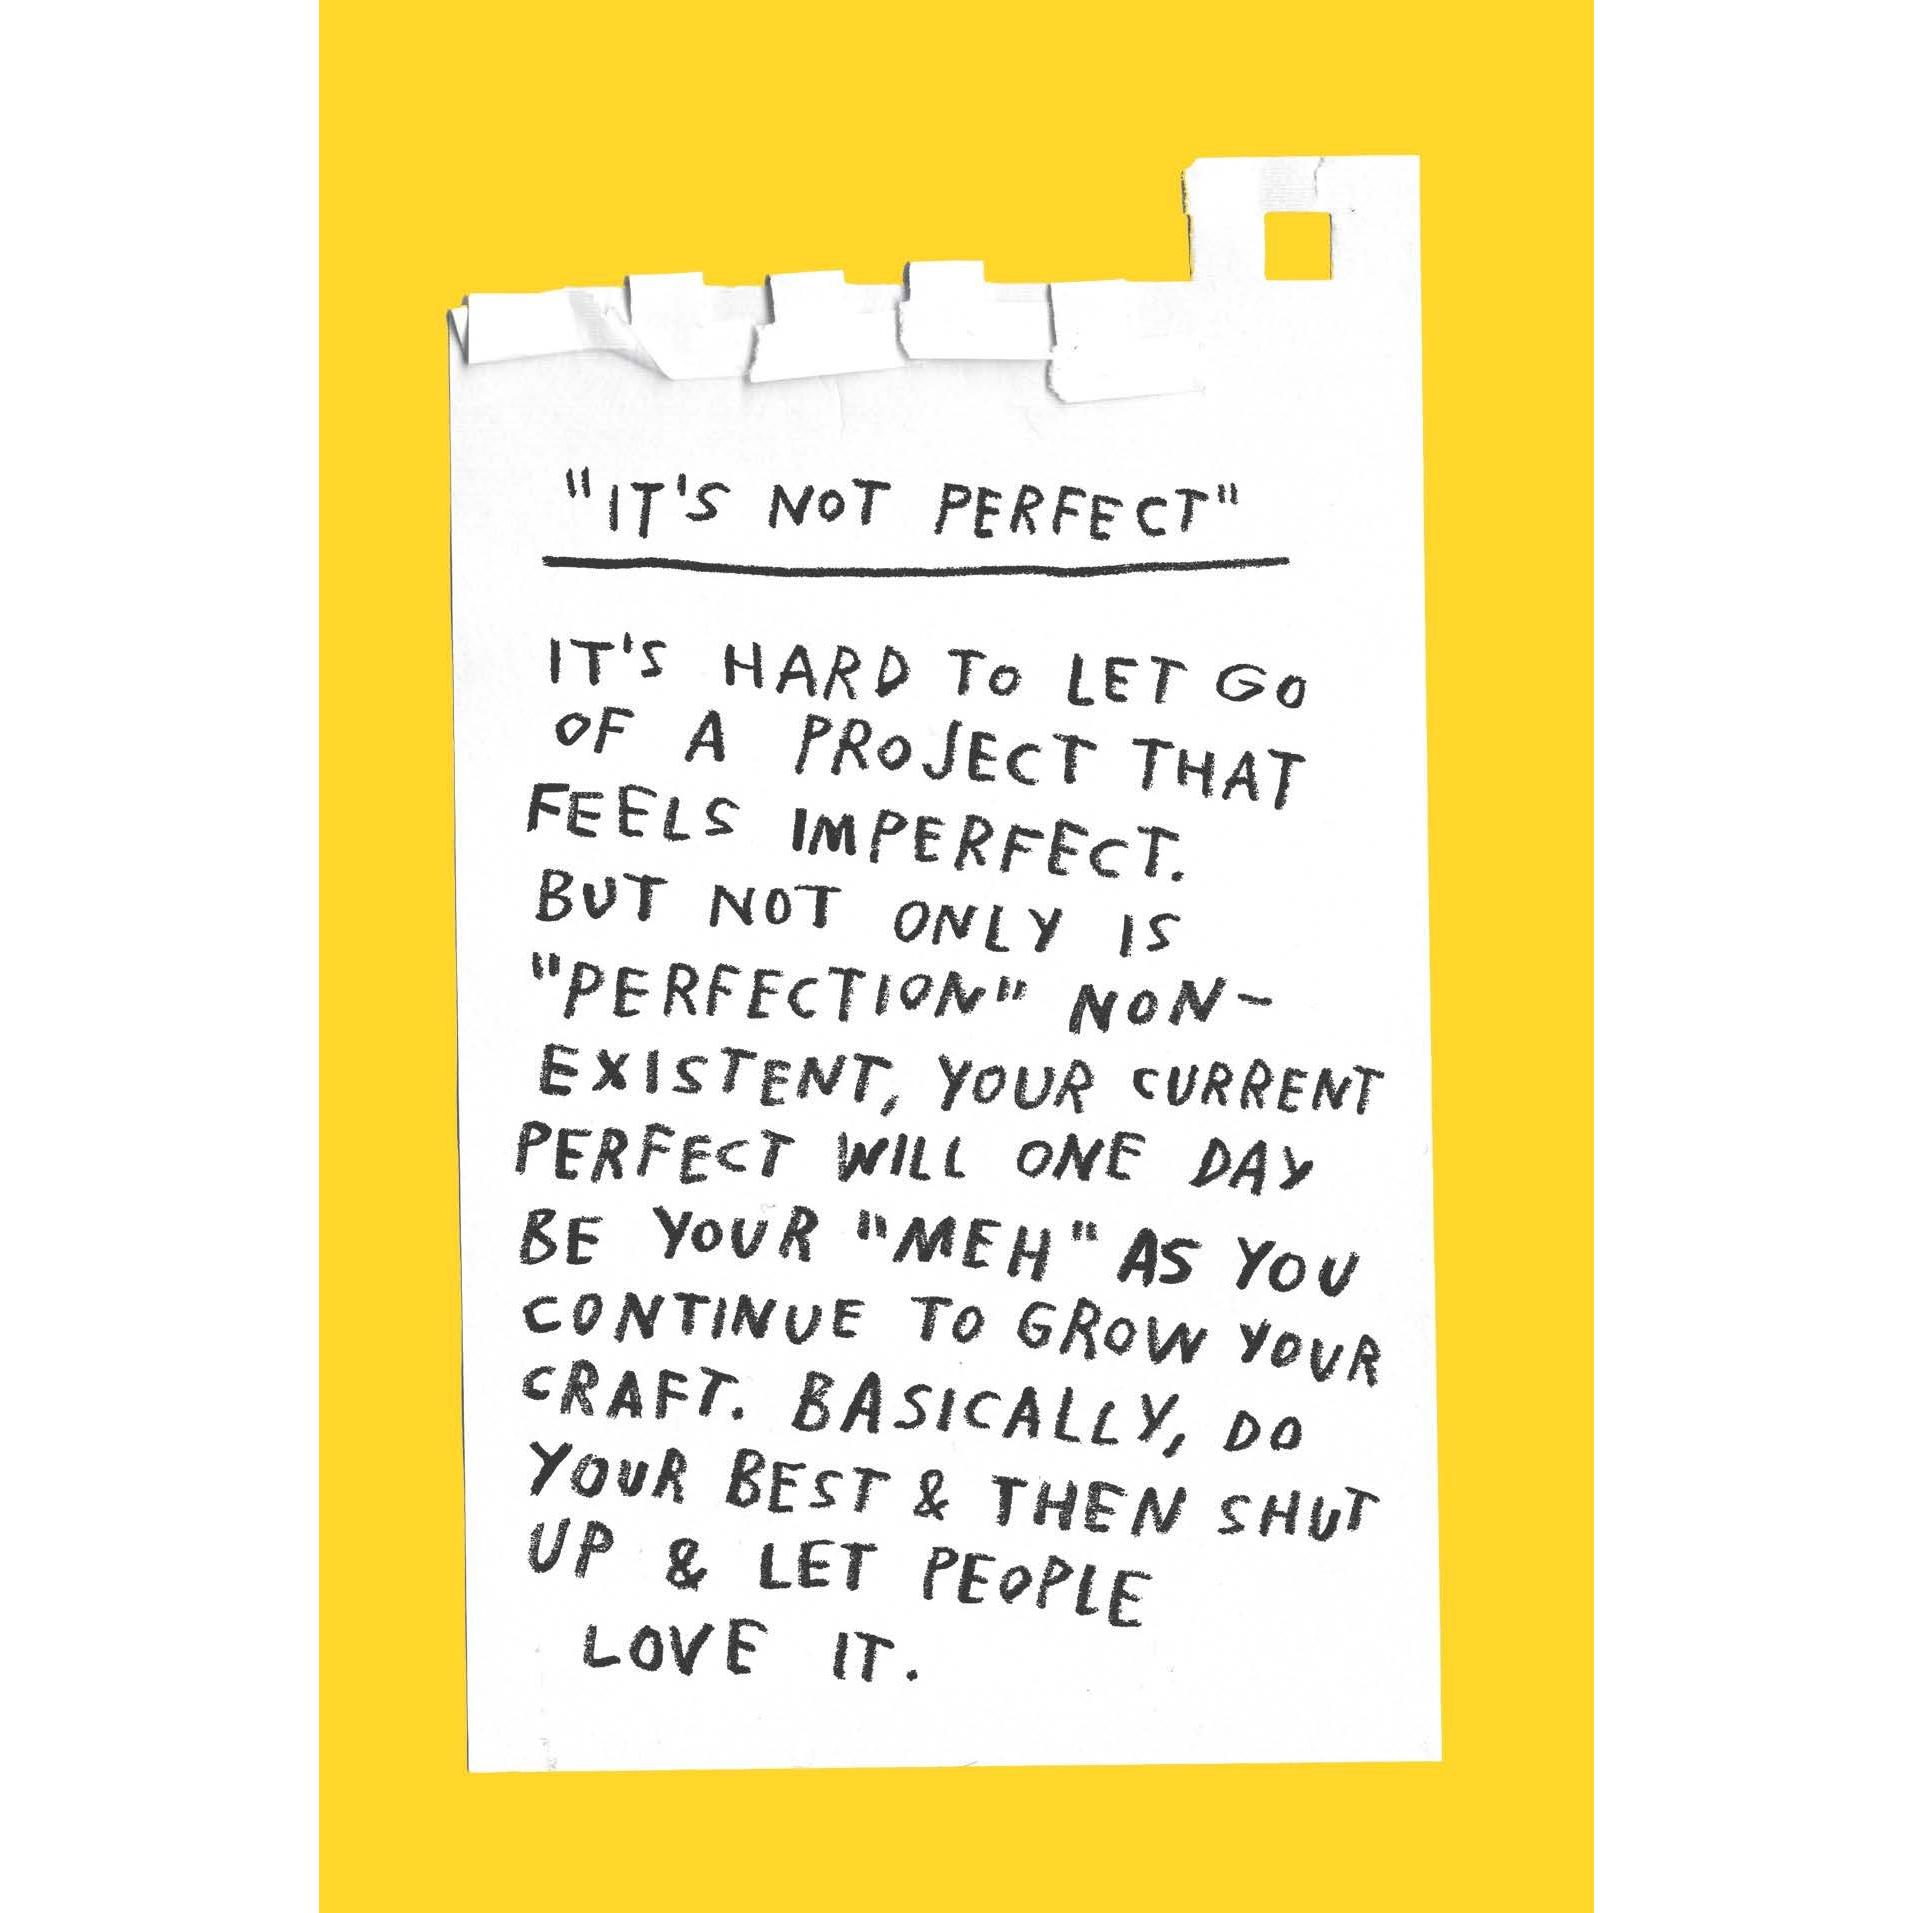 "IT'S NOT PERFECT"
IT'S HARD TO LET GO
OF A PROJECT THAT
FEELS IMPERFECT.
BUT NOT ONLY IS
"PERFECTION" NON-
EXISTENT, YOUR CURRENT
PERFECT WILL ONE DAY
BE YOUR "MEH" AS YOU
CONTINUE TO GROW YOUR
CRAFT. BASICALLY, DO
YOUR BEST & THEN SHUT
UP & LET PEOPLE
LOVE IT.